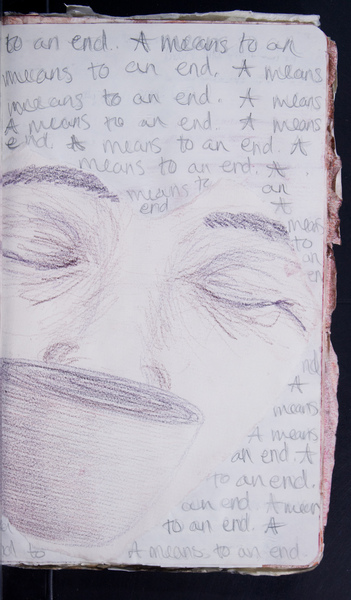 to an end. A means to an
means to an end. A means
means to an end. A means
A means to an end. A means
end. A means to an end. A
means to an end. A
means to an
end. A
means
to
an
en
nd.
A
means
A means
an end. A
to an end.
an end. A mean
to an end. A
to A means to an end